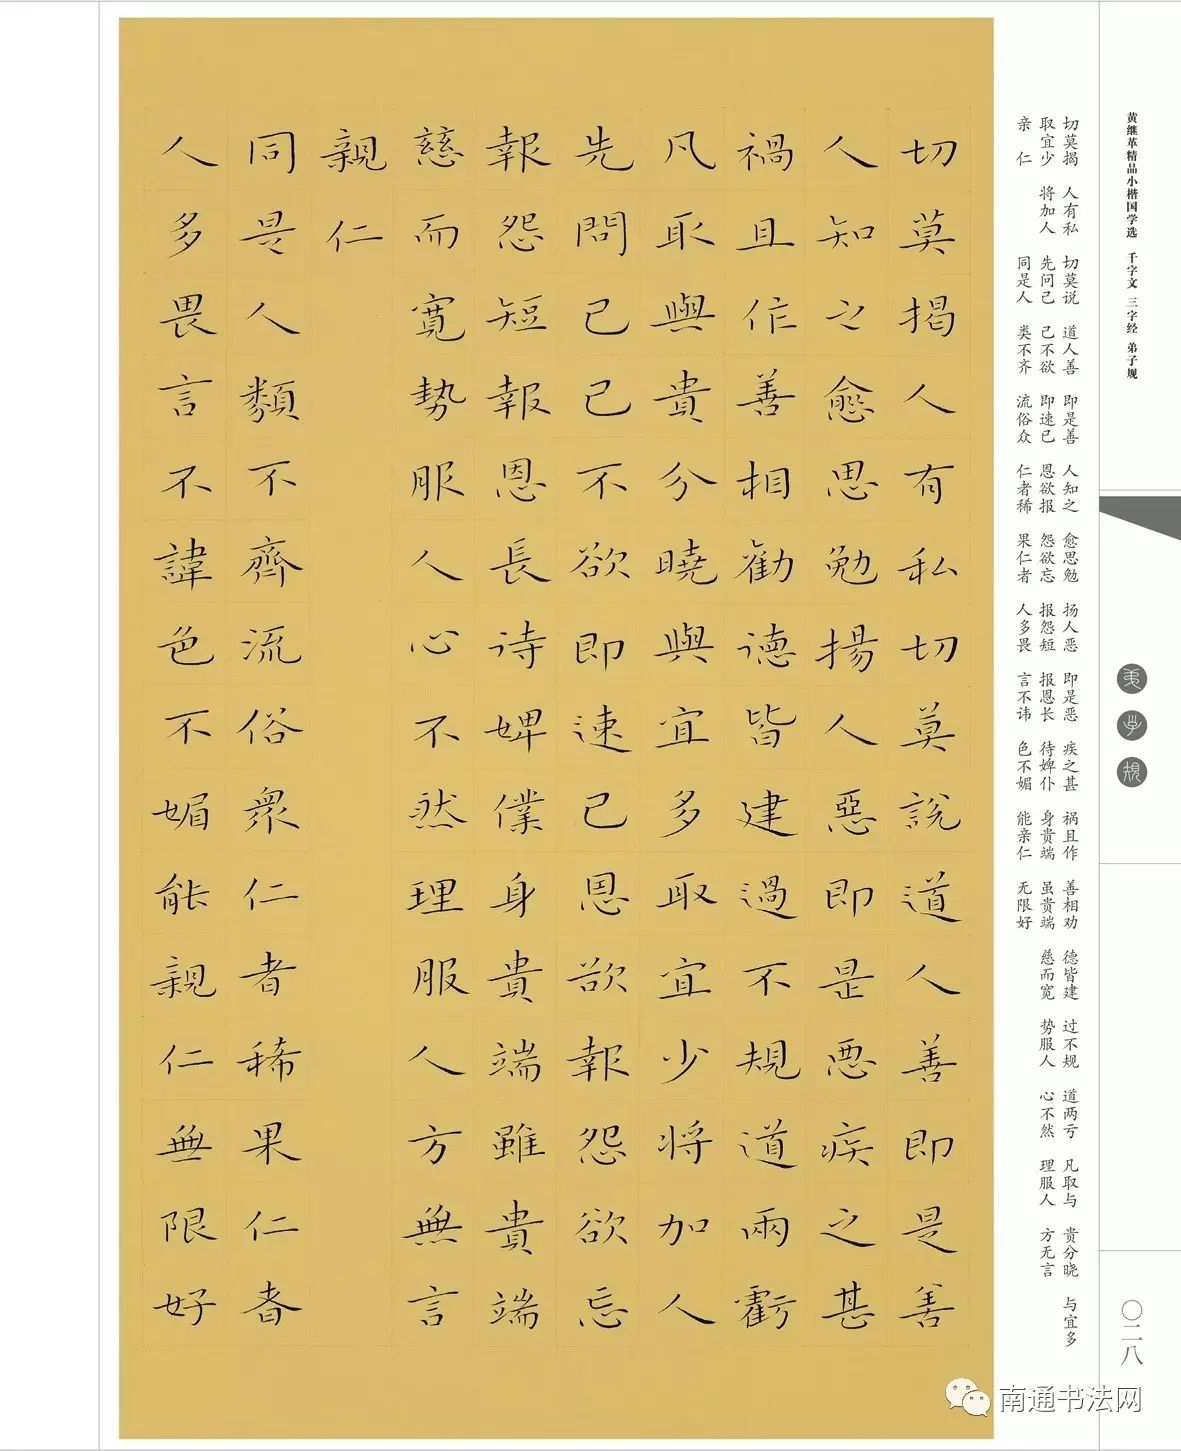 黄继革精品小楷国学选 千字文 三字经 弟子规
切莫揭 人有私 切莫说 道人善 即是善 人知之 愈思勉 扬人恶 即是恶 疾之甚 祸且作 善相劝 德皆建 过不规 道两亏 凡取与 贵分晓 与宜多
取宜少 将加人 先问己 己不欲 即速已 恩欲报 怨欲忘 报怨短 报恩长 待婢仆 身贵端 虽贵端 慈而宽 势服人 心不然 理服人 方无言
亲仁 同是人 类不齐 流俗众 仁者稀 果仁者 人多畏 言不讳 色不媚 能亲仁 无限好
切莫揭人有私切莫說道人善即是善
人知之愈思勉揚人惡即是惡疾之甚
禍且作善相勸德皆建過不規道兩虧
凡取與貴分曉與宜多取宜少將加人
先問己己不欲即速已恩欲報怨欲忘
報怨短報恩長待婢僕身貴端雖貴端
慈而寬勢服人心不然理服人方無言
親仁
同是人類不齊流俗眾仁者稀果仁者
人多畏言不諱色不媚能親仁無限好
弟子规
〇二八
南通书法网